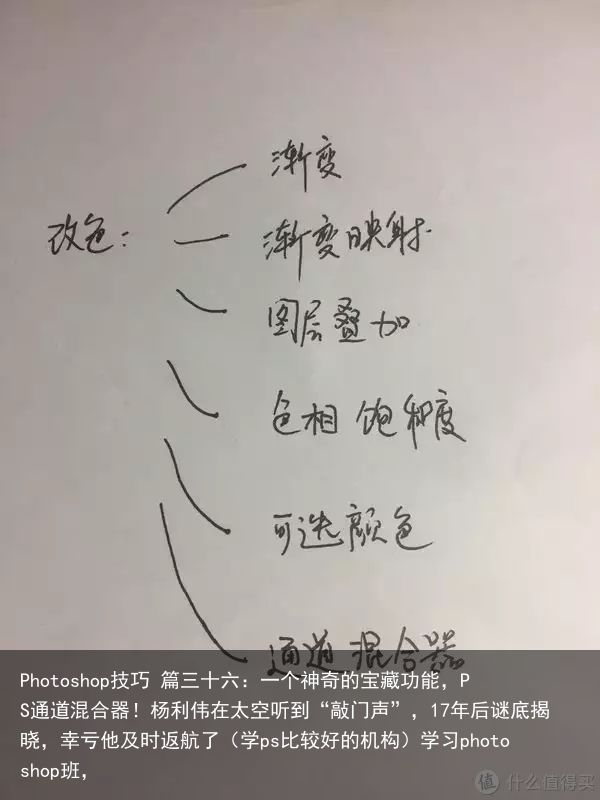 渐变
改色：
渐变映射
图层叠加
色相 饱和度
可选颜色
通道混合器
Photoshop技巧 篇三十六：一个神奇的宝藏功能，P
S通道混合器！杨利伟在太空听到“敲门声”，17年后谜底揭
晓，幸亏他及时返航了（学ps比较好的机构）学习photo
shop班，
值 什么值得买